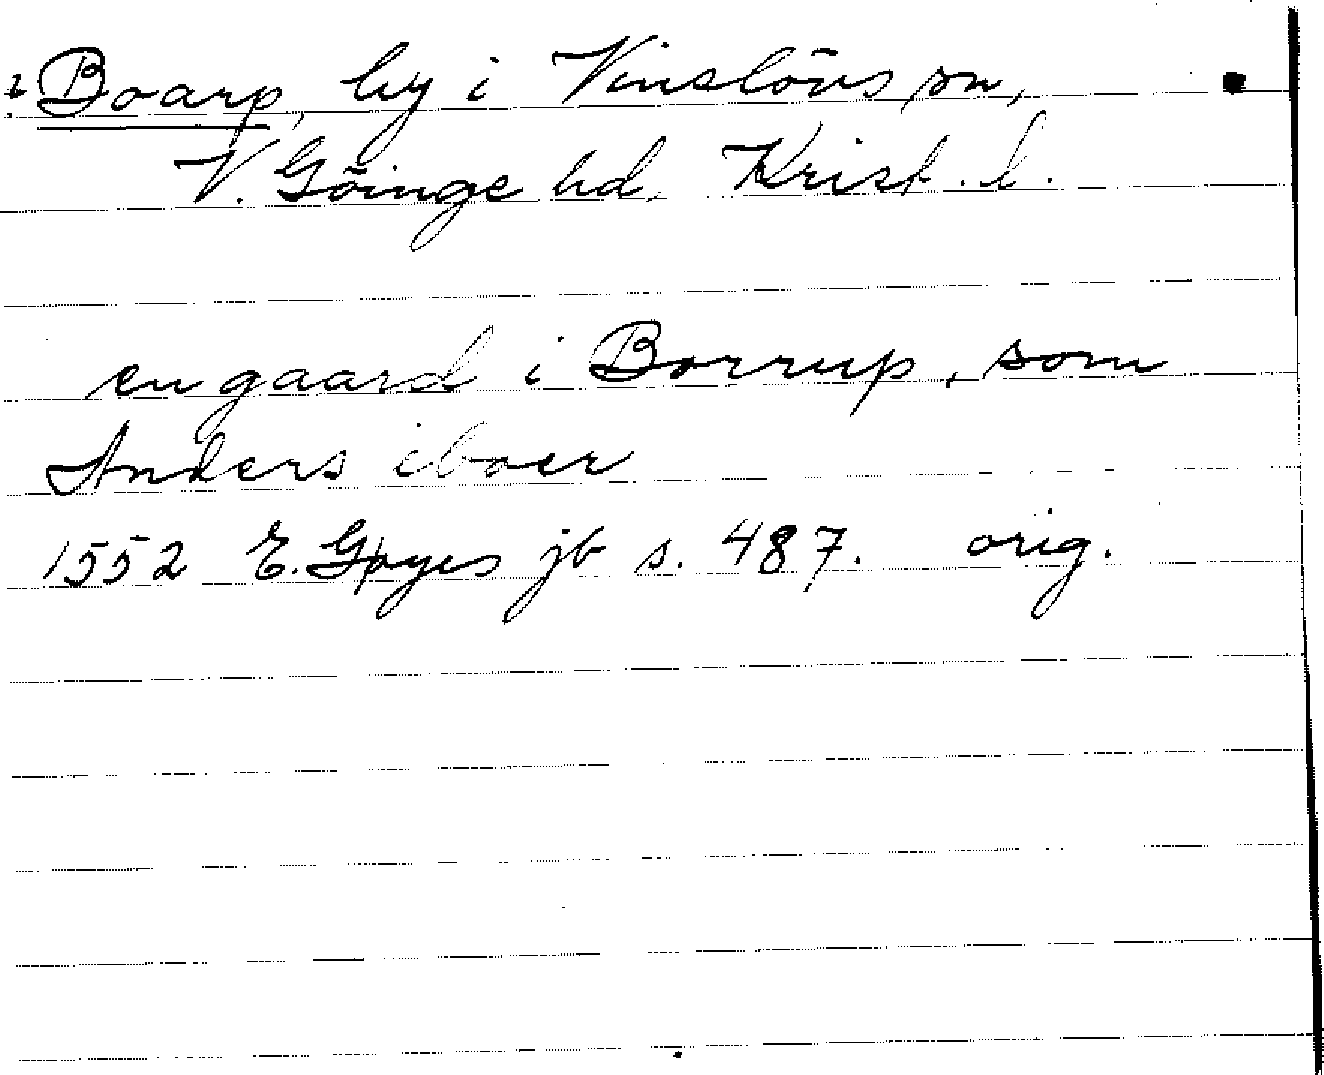 Boarp, by i Vinslövs sn,
V. Göinge hd. Krist. l.
en gaard i Borrup, som
Anders iboer
1552 E. Gøyes jb s. 487. orig.